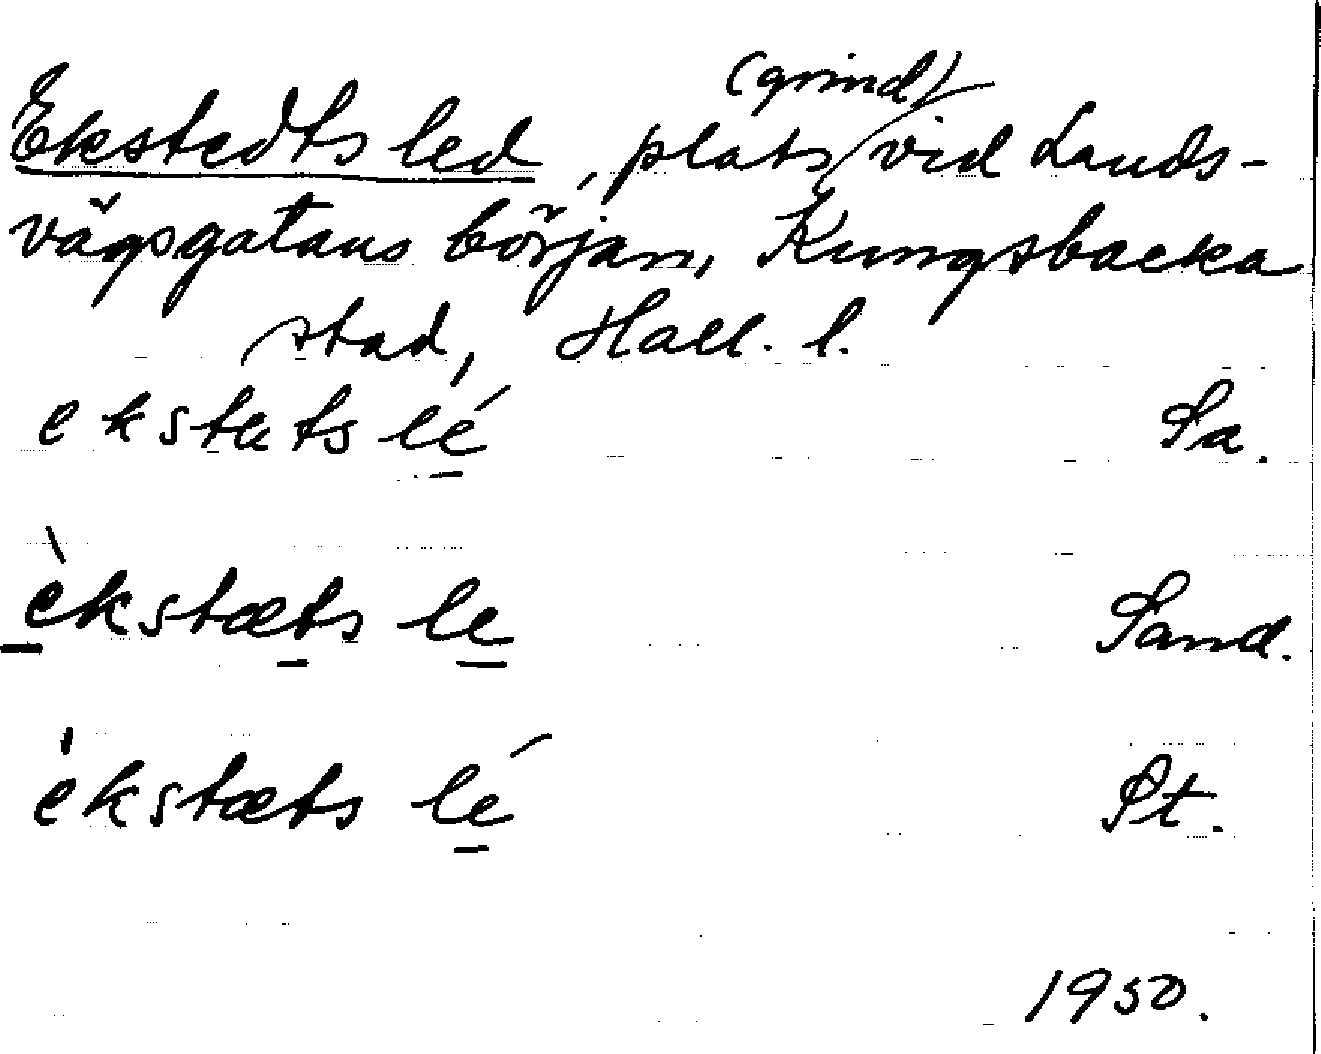 Ekstedts led, plats (grind) vid Lands-
vägsgatans början, Kungsbacka
stad, Hall. l.
ekstæts lé Sa.
èkstæts le Sand.
èkstæts lé St.
1950.